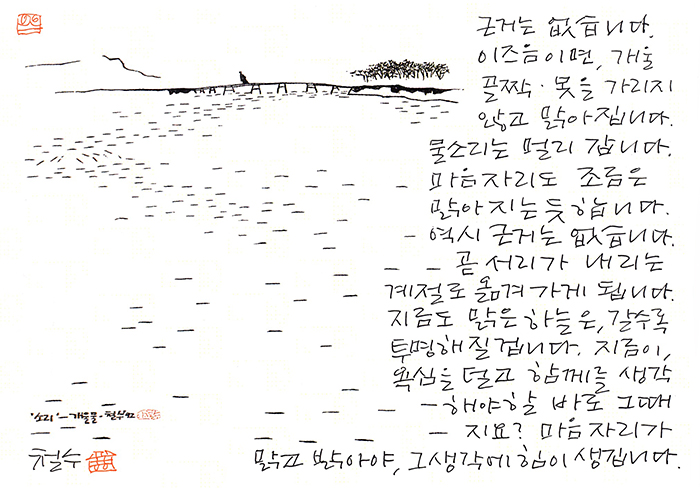 근거는 없습니다.
이즈음이면, 개울
끌짝·못을 가리지
않고 맑아집니다.
물소리는 멀리 갑니다.
마음자리도 조금은
맑아지는듯 합니다.
- 역시 근거는 없습니다.
곧 서리가 내리는
계절로 옮겨가게 됩니다.
지금도 맑은 하늘은, 갈수록
투명해질겁니다. 지금이,
욕심을 덜고 함께를 생각
해야할 바로 그때
지요? 마음자리가
맑고 밝아야, 그생각에 힘이 생깁니다.
'소리' - 개울물 - 철수
철수